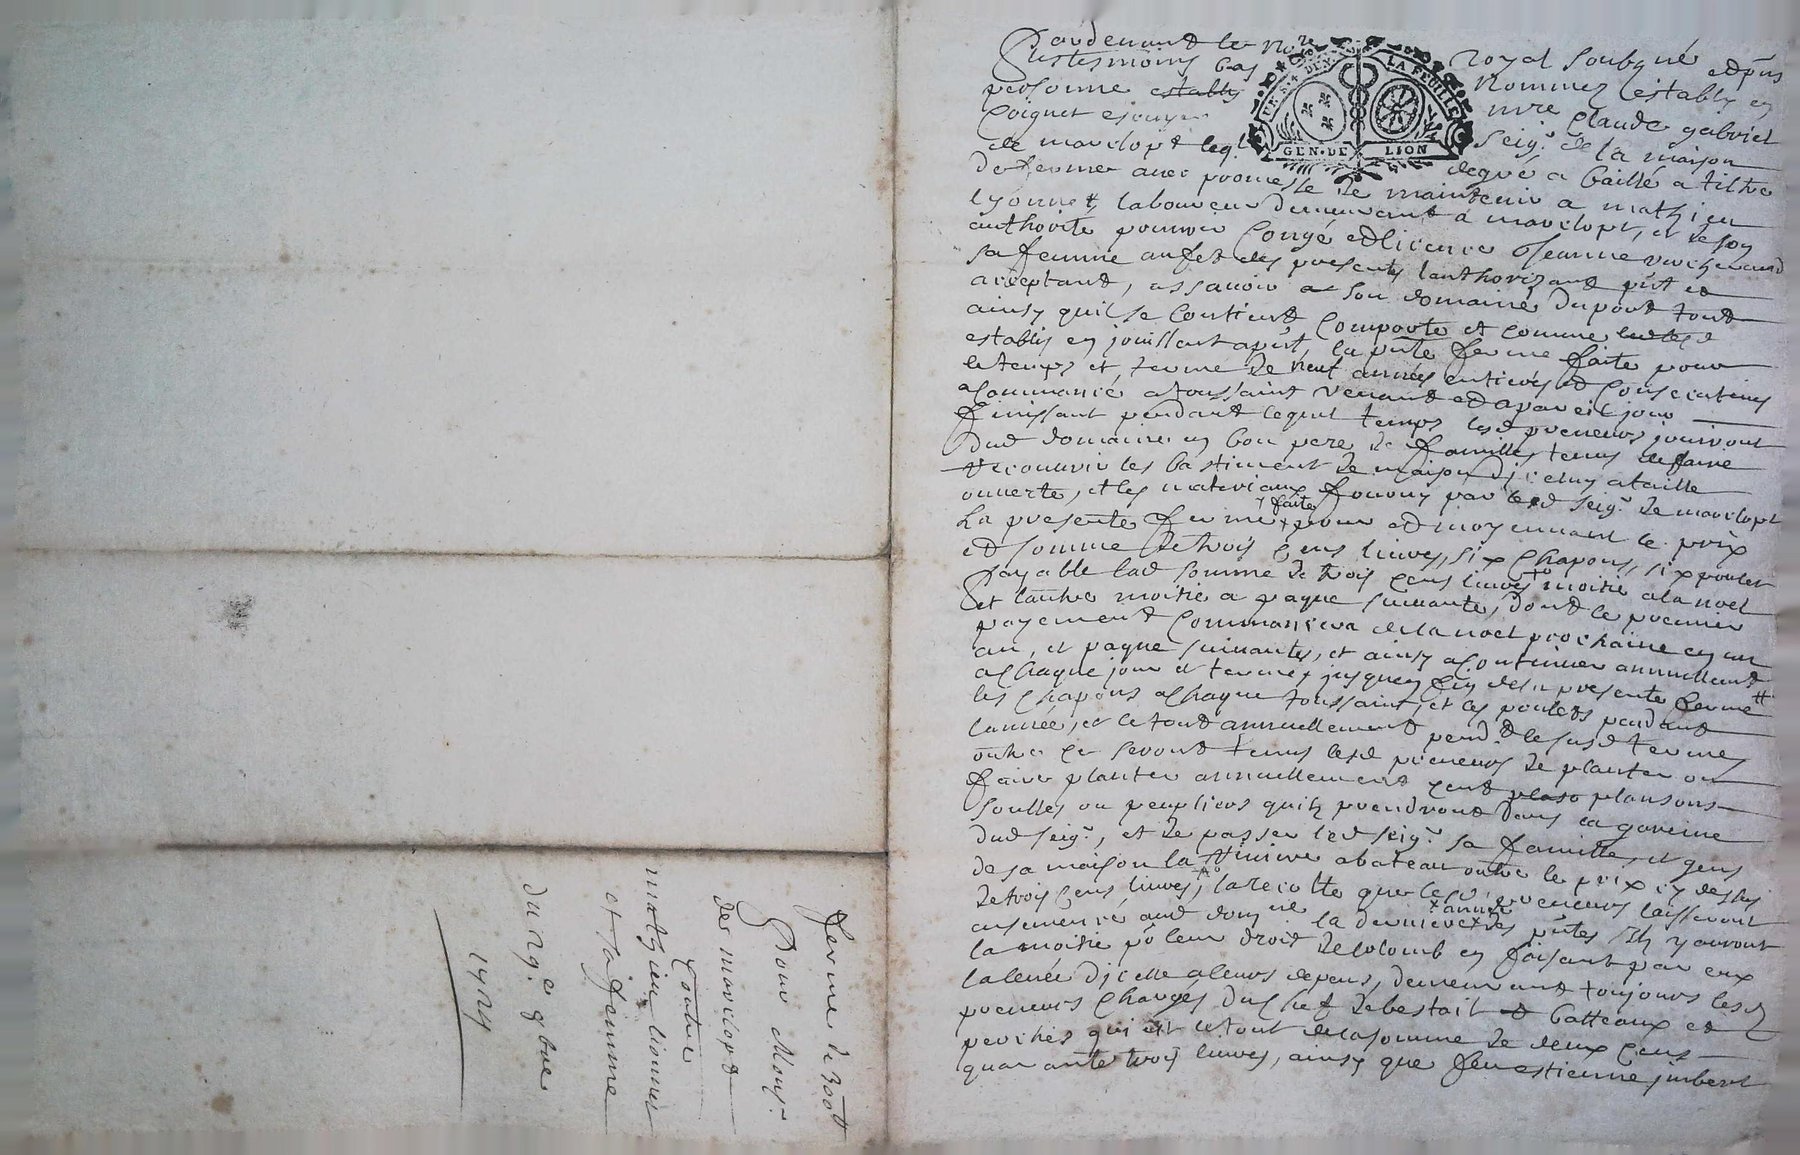 Pardevant le No.re royal soubgné et pns
Les tesmoins bas nommez estably en
personne estably mre claude gabriel
Coignet escuyer seig.r de la maison
de marclopt leq.l de gré a baillé a tiltre
de ferme avec promesse de maintenir a mathieu
lyonnet laboureur demeurant a marclopt, et de son
authorité pouvoir congé et licence Jeanne
sa femme au fet des presentes lauthorizant pnt et
aceptant, assavoir son domaine du pont tout
ainsy quil se contient comporte et comme
establis en jouissent apnt, la pnte ferme faite pour
le temps et terme de neuf années entieres et consecutives
a commancé a toussaint venant et a pareil jour
finissant pendant lequel temps lesd preneurs jouiront
dud domaine en bon pere de famille, tenus de faire
recouvrir les bastiment de maison diceluy a taille
ouverte, et les materiaux fournis par led seig.r de marclopt
La presente ferme faite pour et moyennant le prix
et somme de trois cens livres, six chapons, six poulets
payable lad somme de trois cens livres moitié a la noel
et lautre moitié a paque suivante, dont le premier
payement commancera de la noel prochaine en un
an, et paque suivante, et ainsy a continuer annuellement
a chaque jour et terme jusques fin de la presente ferme
les chapons a chaque toussaint, et les poulets pendant
lannée, et le tout annuellement pend.t le susd terme
outre ce seront tenus lesd preneurs de planter ou
faire planter annuellement cent plansons
soulles ou peupliers quils prendront dans la gareine
dud seig.r, et de passer led seig.r sa famille, et gens
de sa maison la riviere a bateau outre le prix cy dessus
de trois cens livres, la recolte que lesd preneurs laisseront
ensemencé aud dom.ne la derniere année des pntes Ils y auront
la moitié po leur droit de colomb en faisant par eux
la levée dicelle a leurs depens, demeurant toujours lesd
preneurs chargés du chef de bestail batteaux et
perches qui est le tout de la somme de deux cens
quarante trois livres, ainsy que feu estienne jmbert
ferme de 300tt
Pour Mons.r
de marclopt
Contre
mathieu lionnet
et sa femme
du 19.e 8bre
1724
GEN·DE LION
LA FEUILLE